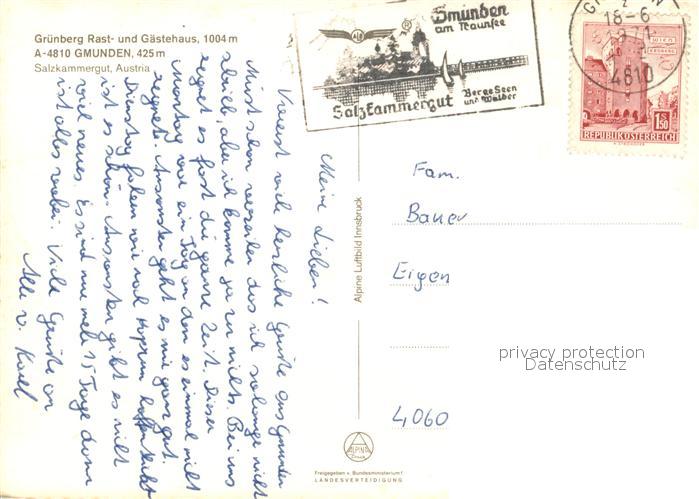 Grünberg Rast- und Gästehaus, 1004 m
A-4810 GMUNDEN, 425 m
Salzkammergut, Austria
Gmunden
am Traunsee
Salzkammergut
Berge Seen
und Wälder
18-6
4810
WIEN
1.50
REPUBLIK ÖSTERREICH
Meine Lieben!
Vorerst viele herzliche Grüße aus Gmunden
Müsst schon verzeihen das ich solange nicht
schrieb, aber ich komme ja zu nichts. Bei uns
regnet es fast die ganze Zeit. Dieser
Montag war ein Tag an dem es einmal nicht
regnete. Ansonsten geht es mir ganz gut.
Dienstag fahren wir nach hoffentlich
ist es schön. Ansonsten gibt es nicht
viel neues. Es sind nur mehr 15 Tage dann
ist alles vorbei. Viele Grüße an
Alle v. Karl
Alpine Luftbild Innsbruck
Fam.
Bauer
Eigen
4060
privacy protection
Datenschutz
ALPINE
Freigegeben v. Bundesministerium f.
LANDESVERTEIDIGUNG